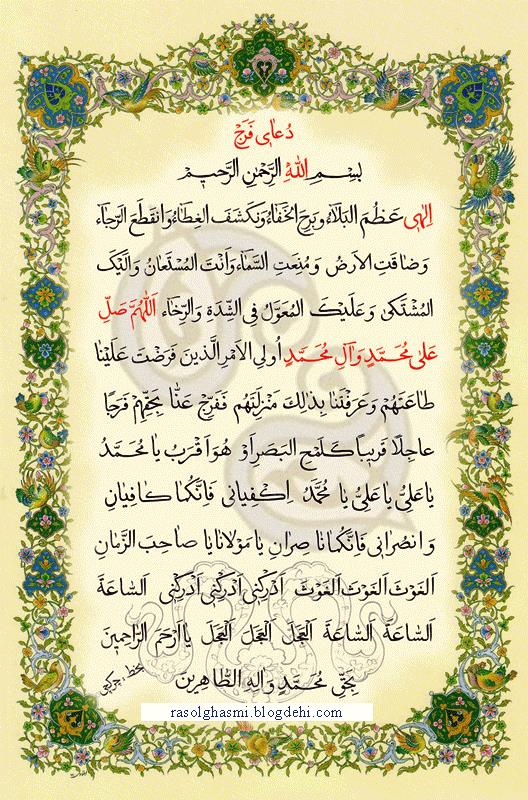 دُعایِ فَرَج
بِسْمِ اللهِ الرَّحْمٰنِ الرَّحیمِ
اِلٰهی عَظُمَ الْبَلاءُ وَبَرِحَ الْخَفاءُ وَنْکَشَفَ الْغِطاءُ وَانْقَطَعَ الرَّجاءُ
وَضاقَتِ الْاَرْضُ وَمُنِعَتِ السَّماءُ وَاَنْتَ الْمُسْتَعانُ وَاِلَیْکَ
الْمُشْتَکیٰ وَعَلَیْکَ الْمُعَوَّلُ فِی الشِّدَةِ وَالرَّخاءِ اَللّٰهُمَّ صَلِّ
عَلیٰ مُحَمَّدٍ وَآلِ مُحَمَّدٍ اُولِی الْاَمْرِ الَّذینَ فَرَضْتَ عَلَیْنا
طاعَتَهُمْ وَعَرَفْتَنا بِذٰلِکَ مَنْزِلَتَهُم فَفَرِّجْ عَنّا بِحَقِّهِمْ فَرَجًا
عاجِلًا قَریباً کَلَمْحِ الْبَصَرِ اَوْ هُوَ اَقْرَبُ یا مُحَمَّدُ
یاعَلِیُّ یاعَلِیُّ یا مُحَمَّدُ اِکْفِیانی فَاِنَّکُما کافِیانِ
وَانْصُرانی فَاِنَّکُما ناصِرانِ یا مَوْلانا یا صاحِبَ الزَّمانِ
اَلْغَوْثَ اَلْغَوْثَ اَلْغَوْثَ اَدْرِکْنی اَدْرِکْنی اَدْرِکْنی اَلسّاعَةَ
اَلسّاعَةَ اَلسّاعَةَ اَلْعَجَلَ اَلْعَجَلَ اَلْعَجَلَ یا اَرْحَمَ الرّاحِمینَ
بِحَقِّ مُحَمَّدٍ وَآلِهِ الطّاهِرینَ
rasolghasmi.blogdehi.com